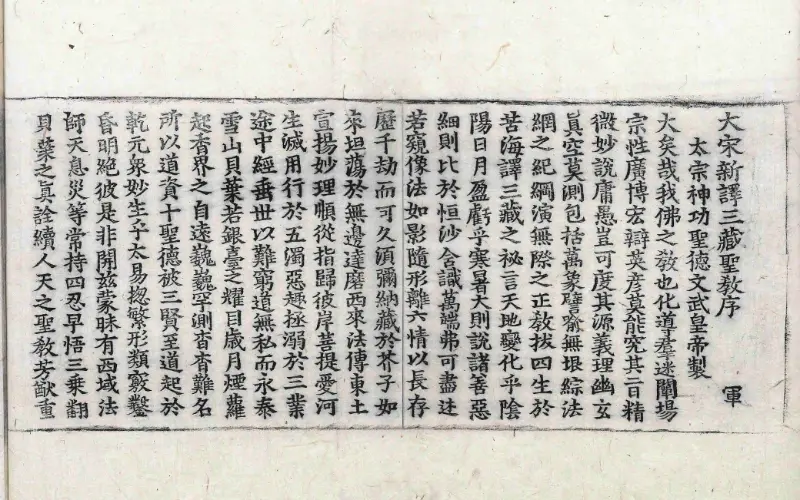 大宋新譯三藏聖教序 軍
太宗神功聖德文武皇帝製
大矣哉我佛之教也化道羣迷闡揚
宗性廣博宏辯英彥莫能究其旨精
微妙說庸愚豈可度其源義理幽玄
眞空莫測包括萬象譬喻無垠綜法
網之紀綱演無際之正教拔四生於
苦海譯三藏之祕言天地變化乎陰
陽日月盈虧乎寒暑大則說諸善惡
細則比於恒沙含識萬端弗可盡述
若窺像法如影隨形離六情以長存
歷千劫而可久湏彌納藏於芥子如
來坦蕩於無邊達磨西來法傳東土
宣揚妙理順從指歸彼岸菩提愛河
生滅用行於五濁惡趣拯溺於三業
途中經垂世以難窮道無私而永泰
雪山貝葉若銀臺之耀目歲月煙蘿
起香界之自遠巍巍罕測杳杳難名
所以道資十聖德被三賢至道起於
乾元衆妙生乎太易揔繁形類竅鑿
昏明絕彼是非開茲蒙昧有西域法
師天息災等常持四忍早悟三乘翻
貝葉之眞詮續人天之聖教芳猷重